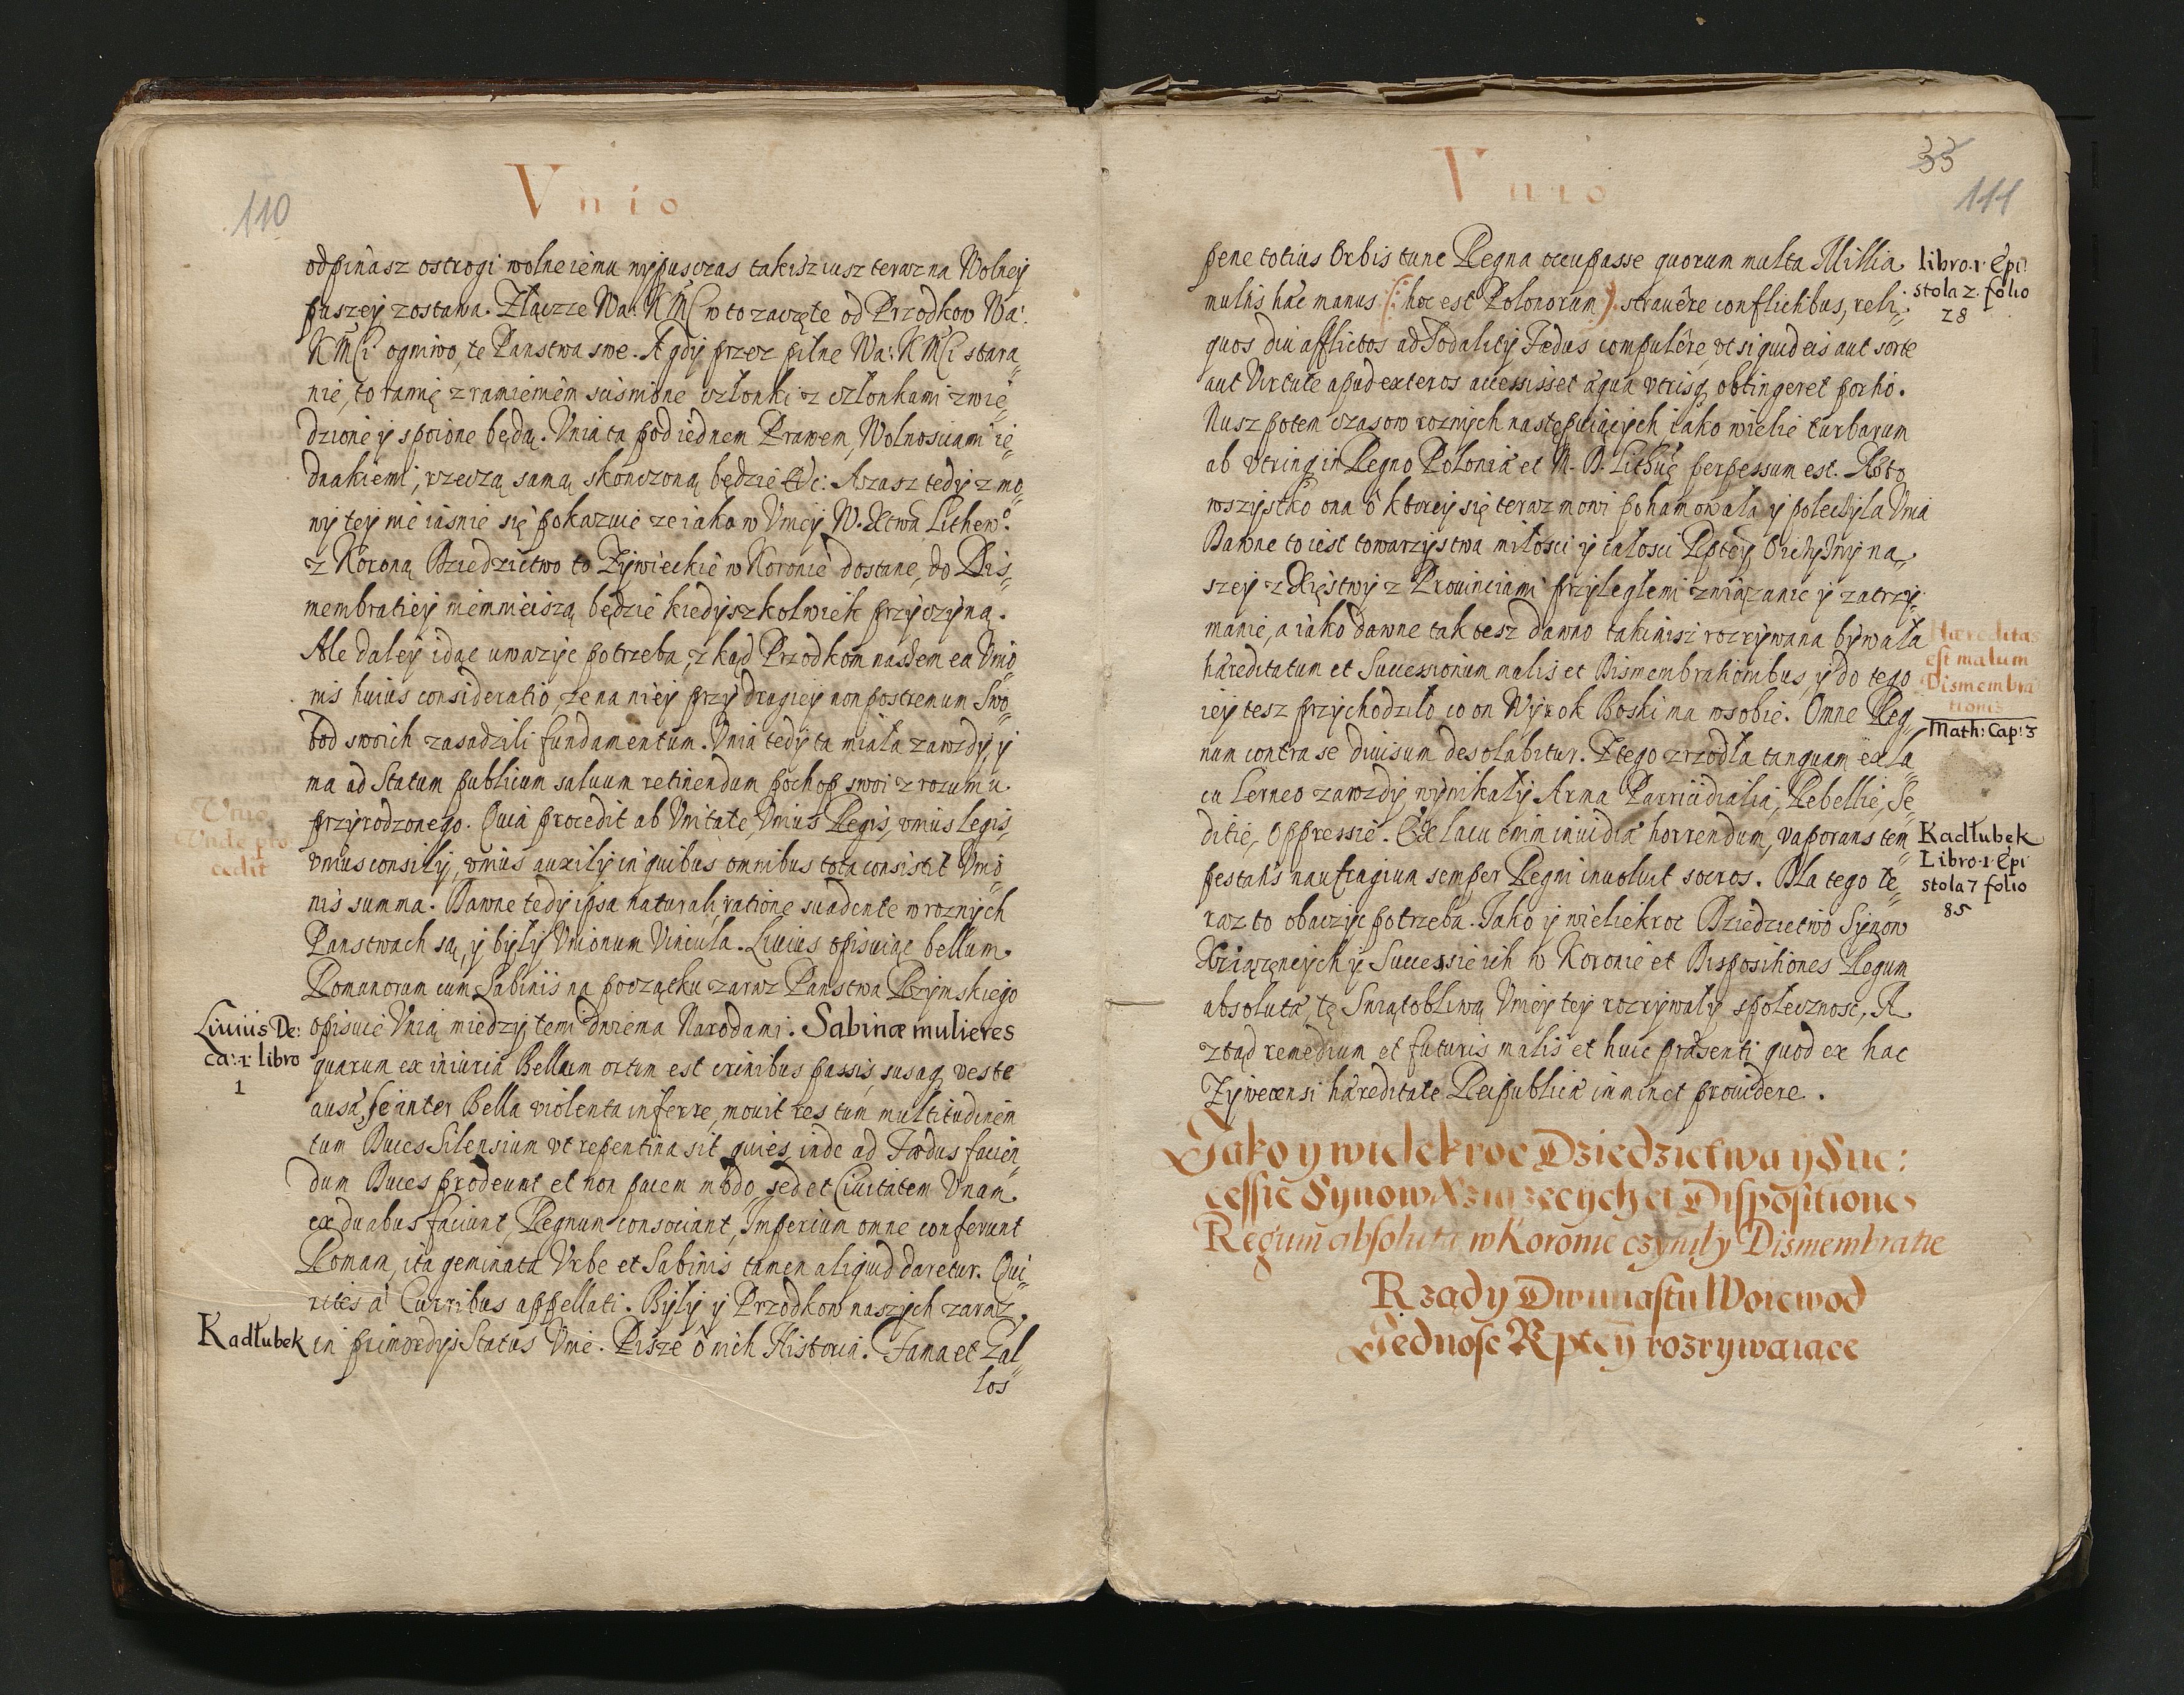 Vnio
110
odpinasz ostrogi wolneiemu wypusczas takisz iusz teraz na Wolney
paszey zostawa. Złącze Wa: KMC w to zaczęte od Przodkow Wa:
KMCi ogniwo, te Panstwa swe. A gdy przez pilne Wa: KMCi stara
nie, to ramię z ramieniem scisnione członki z członkami zwie
dzione y spoione będą. Vnia ta pod iednem Prawem, Wolnosciami ie
dnakiemi, rzeczą samą skonczoną będzie &c: Azasz tedy z mo
wy tey nie iasnie się pokazuie ze iako w Vniey W. Xtwa Lithewo.
z Koroną Dziedzictwo to Zywieckie w Koronie dostane, do Dis
membratiey niemnieiszą będzie kiedyszkolwiek przyczyną.
Ale daley idąc uwazyc potrzeba, z kąd Przodkom naszem ea Vnio
nis huius consideratio, ze na niey przy drugiey non postremum Swo
bod swoich zasadzili fundamentum. Vnia tedy ta miała zawzdy, y
ma ad Statum publicum saluum retinendum pochop swoi z rozumu
przyrodzonego. Quia procedit ab Vnitate, Vnius Regis, vnius legis,
vnius consilij, vnius auxilij in quibus omnibus tota consistit Vnio
nis summa. Dawne tedy ipsa naturali ratione suadente w roznych
Panstwach są, y były Vnionum Vincula. Liuius opisuiąc bellum
Romanorum cum Sabinis na początku zaraz Panstwa Rzymskiego
opisuie Vnią miedzy temi dwiema Narodami. Sabinæ mulieres
quarum ex iniuria Bellum ortum est crinibus passis, susaq veste
ausæ, se inter Bella violenta inferre, mouit res tum multitudinem
tum Duces Silensium vt repentina sit quies, inde ad Fædus facien
dum Duces prodeunt et non pacem modo, sed et Ciuitatem Vnam
ex duabus faciunt, Regnum consociant, Imperium omne conferunt
Romam, ita geminata Vrbe et Sabinis tamen aliquid daretur. Qui
rites à Curribus appellati. Były y Przodkow naszych zaraz
in primordijs Status Vnie. Pisze o nich Historia. Fama et Zal
los
Vnio
Vnde pro
cedit
Liuius De:
ca: 1 libro
1
Kadłubek
Vnio
33
111
pene totius Orbis tunc Regna occupasse quorum multa Millia
multis hæc manus (: hoc est Polonorum :) strauêre conflictibus, reli
quos diu afflictos ad Sodality Fædus compulêre, vt si quid eis aut sorte
aut Virtute apud exteros accessisset æqua vtrisq obtingeret portio.
Nusz potem czasow roznych następuiących iako wielie turbarum
ab vtrinq in Regno Poloniæ et M. D. Lithuę perpessum est. A to
wszystko ona o ktorey się teraz mowi pohamowała y poleczyla Vnia
Dawne to iest towarzystwa miłosci y całosci Rptey Oiczyzny na
szey z Xięstwy z Prouinciami przyległemi związanie y zatrzy
manie, a iako dawne tak tesz dawno takimisz rozrywana bywała
hæreditatum et Successionum malis et Dismembrationibus, y do tego
iey tesz przychodziło co on Wyrok Boski ma w sobie. Omne Reg
num contra se diuisum desolabitur. Z tego zrzodła tanquam ex la
cu Lerneo zawzdy wynikały Arma Parricidialia, Rebellie, Se
ditie, Oppressie. Ex lacu enim inuidiæ horrendum, vaporans tem
pestatis naufragium semper Regni inuoluit socros. Dla tego te
raz to obaczyc potrzeba. Iako y wieliekroc Dziedzictwo Synow
Xiążęncych y Successie ich w Koronie et Dispositiones Regum
absolutæ, tę Swiątobliwą Vniey tey rozrywały społecznosc, A
ztąd remedium et futuris malis et huic præsenti quod ex hac
Zywecensi hæreditate Reipublicæ iminet prouidere.
Iako y wielekroc Dziedzictwa y Suc:
cessie Synow Xiązęcych et Dispositiones
Regum absolutæ w Koronie czyniły Dismembratie
Rządy Dwunastu Woiewod
Iednosc Rptey rozrywaiące
libro 1 Epi
stola 2 folio
28
Hæreditas
est malum
Dismembra
tionis
Math: Cap: 3
Kadłubek
Libro 1 Epi
stola 7 folio
85